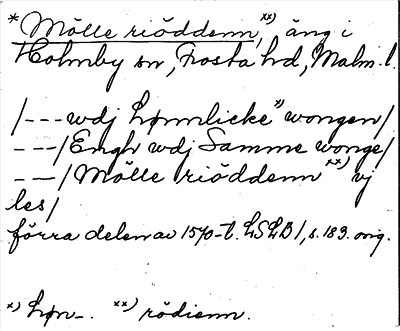 *Mölle riöddenn,xx) äng i
Holmby sn, Frosta hd, Malm. l.
/--- wdj hønnlicke x) wongen/
---/Engh wdj Samme wonge/
---/Mölle riöddenn xx) vj
les/
förra delen av 1570-t. LSLB 1, s. 189. orig.
x) høn-. xx) rödienn.